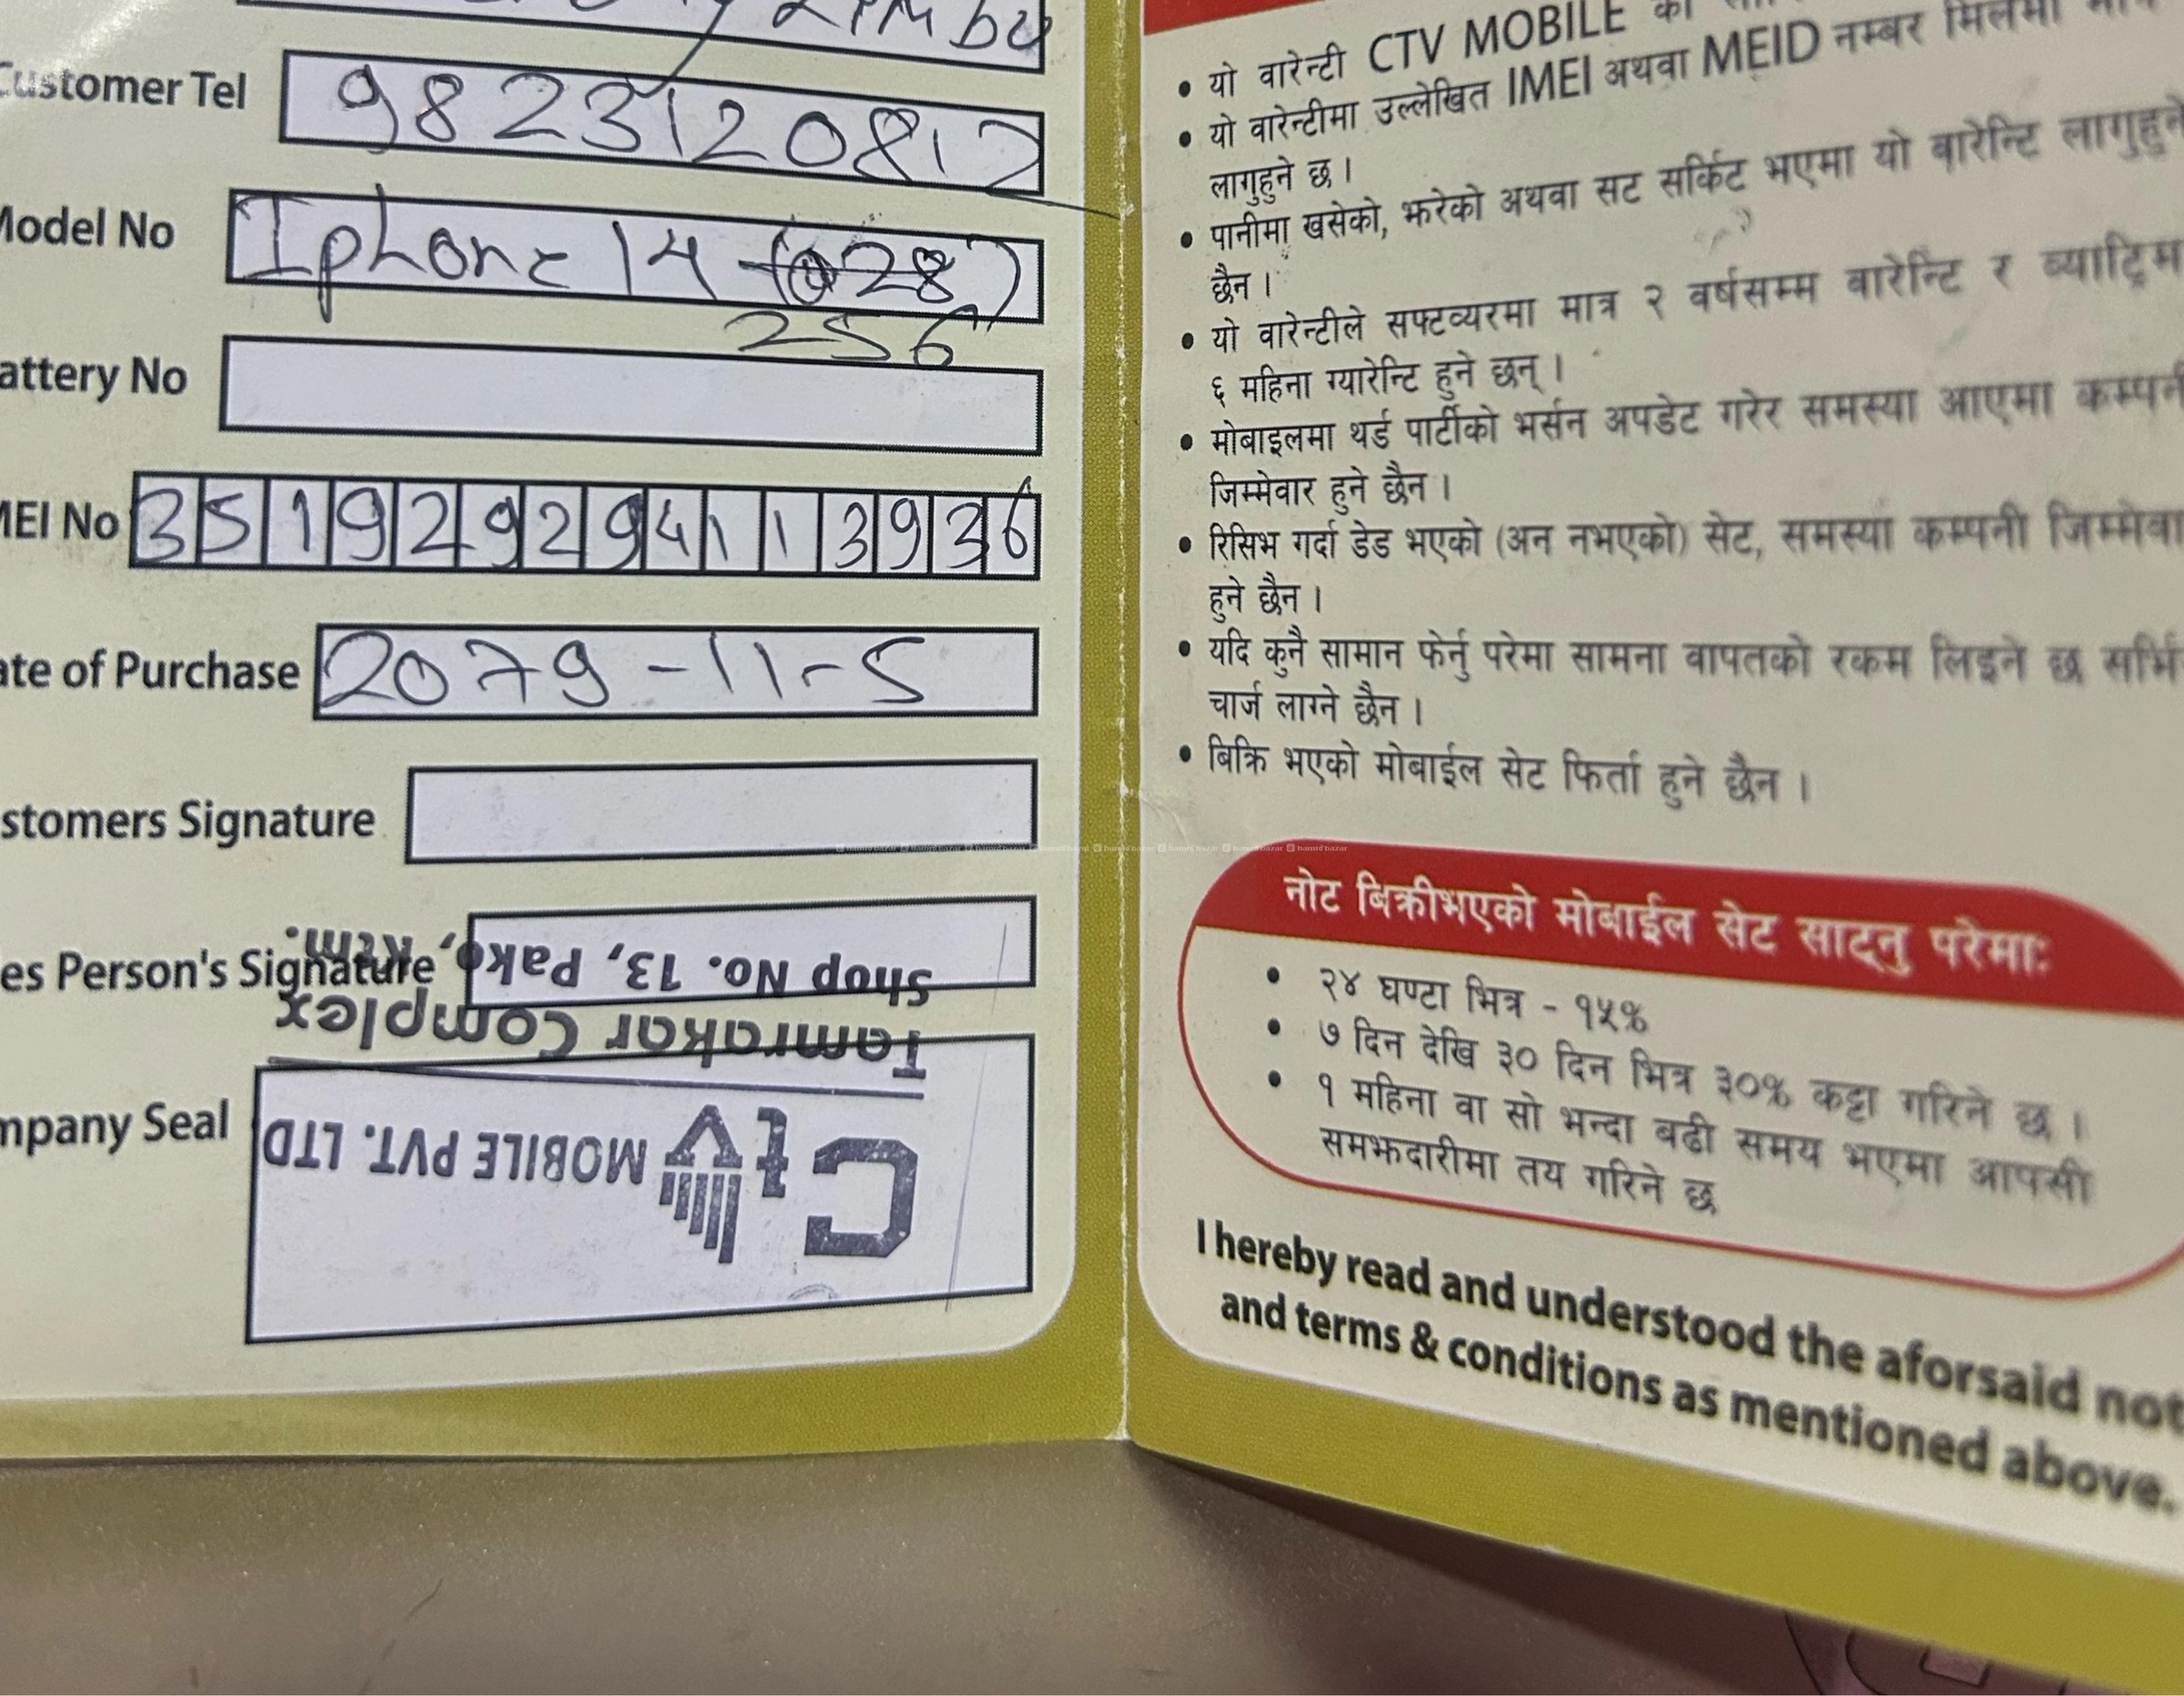 Customer Tel 9823120812
Model No Iphone 14 (128)
256
attery No
MEI No 351929294113936
ate of Purchase 2079-11-5
stomers Signature
es Person's Signature
Shop No. 13, Pako, Ktm.
Tamrakar Complex
mpany Seal
Ctv MOBILE PVT. LTD
• यो वारेन्टी CTV MOBILE को
• यो वारेन्टीमा उल्लेखित IMEI अथवा MEID नम्बर मिलेमा
लागुहुने छ ।
• पानीमा खसेको, झरेको अथवा सट सर्किट भएमा यो वारेन्टि लागुहुने
छैन ।
• यो वारेन्टीले सफ्टव्यरमा मात्र २ वर्षसम्म वारेन्टि र ब्याट्रिम
६ महिना ग्यारेन्टि हुने छन् ।
• मोबाइलमा थर्ड पार्टीको भर्सन अपडेट गरेर समस्या आएमा कम्पनी
जिम्मेवार हुने छैन ।
• रिसिभ गर्दा डेड भएको (अन नभएको) सेट, समस्या कम्पनी जिम्मेवा
हुने छैन ।
• यदि कुनै सामान फेर्नु परेमा सामना वापतको रकम लिइने छ सर्भि
चार्ज लाग्ने छैन ।
• बिक्रि भएको मोबाईल सेट फिर्ता हुने छैन ।
hamrobazar hamrobazar hamrobazar hamrobazar hamrobazar hamrobazar hamrobazar hamrobazar
नोट बिक्रीभएको मोबाईल सेट साट्नु परेमाः
• २४ घण्टा भित्र - १५%
• ७ दिन देखि ३० दिन भित्र ३०% कट्टा गरिने छ ।
• १ महिना वा सो भन्दा बढी समय भएमा आपसी
समझदारीमा तय गरिने छ
I hereby read and understood the aforsaid not
and terms & conditions as mentioned above.